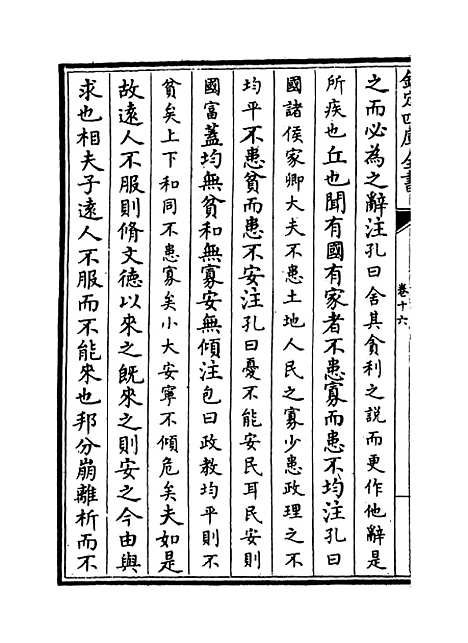 欽定四庫全書
卷十六
之而必為之辭注孔曰舍其貪利之説而更作他辭是
所疾也丘也聞有國有家者不患寡而患不均注孔曰
國諸侯家卿大夫不患土地人民之寡少患政理之不
均平不患貧而患不安注孔曰憂不能安民耳民安則
國富蓋均無貧和無寡安無傾注包曰政教均平則不
貧矣上下和同不患寡矣小大安寧不傾危矣夫如是
故遠人不服則脩文德以來之既來之則安之今由與
求也相夫子遠人不服而不能來也邦分崩離析而不